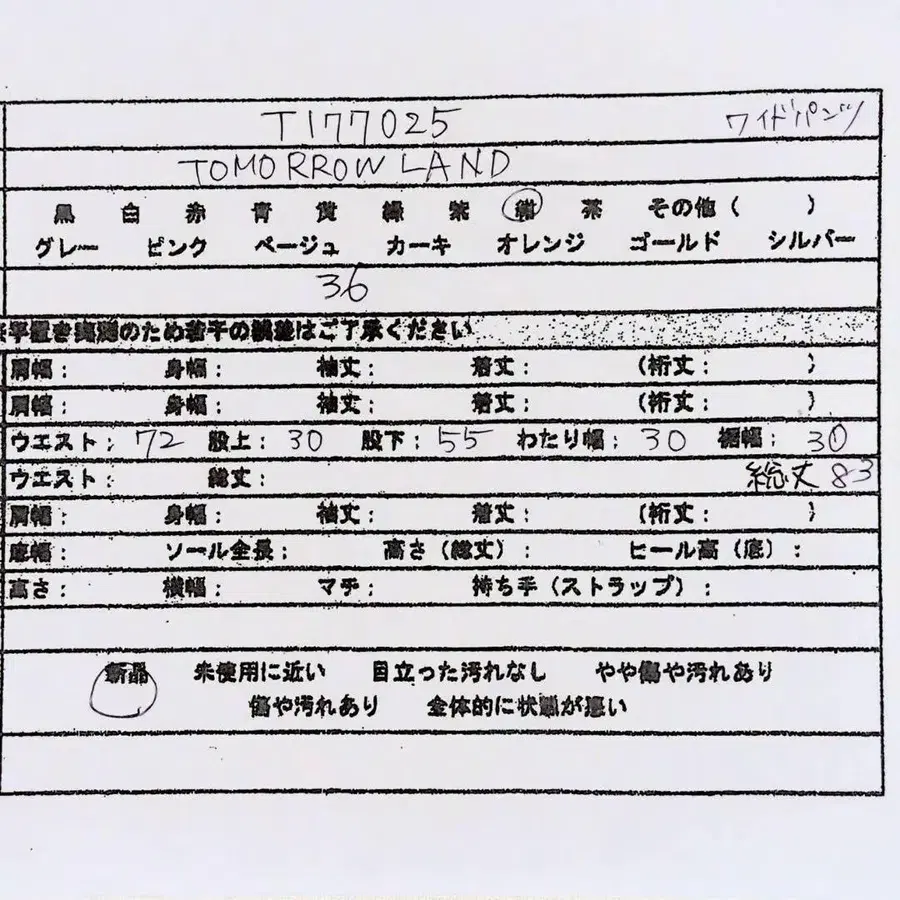 T177025 ワイドパンツ
TOMORROWLAND
黒 白 赤 青 黄 緑 紫 紺 茶 その他（ ）
グレー ピンク ベージュ カーキ オレンジ ゴールド シルバー
36
※平置き実測のため若干の誤差はご了承ください
肩幅： 身幅： 袖丈： 着丈： （裄丈： ）
肩幅： 身幅： 袖丈： 着丈： （裄丈： ）
ウエスト：72 股上：30 股下：55 わたり幅：30 裾幅：30
ウエスト： 総丈： 総丈 83
肩幅： 身幅： 袖丈： 着丈： （裄丈： ）
底幅： ソール全長： 高さ（総丈）： ヒール高（底）：
高さ： 横幅： マチ： 持ち手（ストラップ）：
新品 未使用に近い 目立った汚れなし やや傷や汚れあり
傷や汚れあり 全体的に状態が悪い